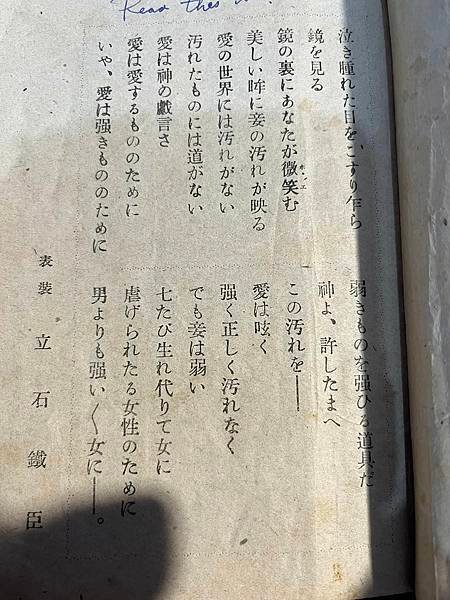 Read this
泣き腫れた目を、こすり乍ら
鏡を見る
鏡の裏にあなたが微笑む
ホヽエ
美しい眸に妾の汚れが映る
愛の世界には汚れがない
汚れたものには道がない
愛は神の戯言さ
愛は愛するもののために
いや、愛は强きもののために
弱きものを强ひる道具だ
神よ、許したまへ
この汚れを――
愛は呟く
强く正しく汚れなく
でも妾は弱い
七たび生れ代りて女に
虐げられたる女性のために
男よりも强い〱女に――。
表装 立石鐵臣